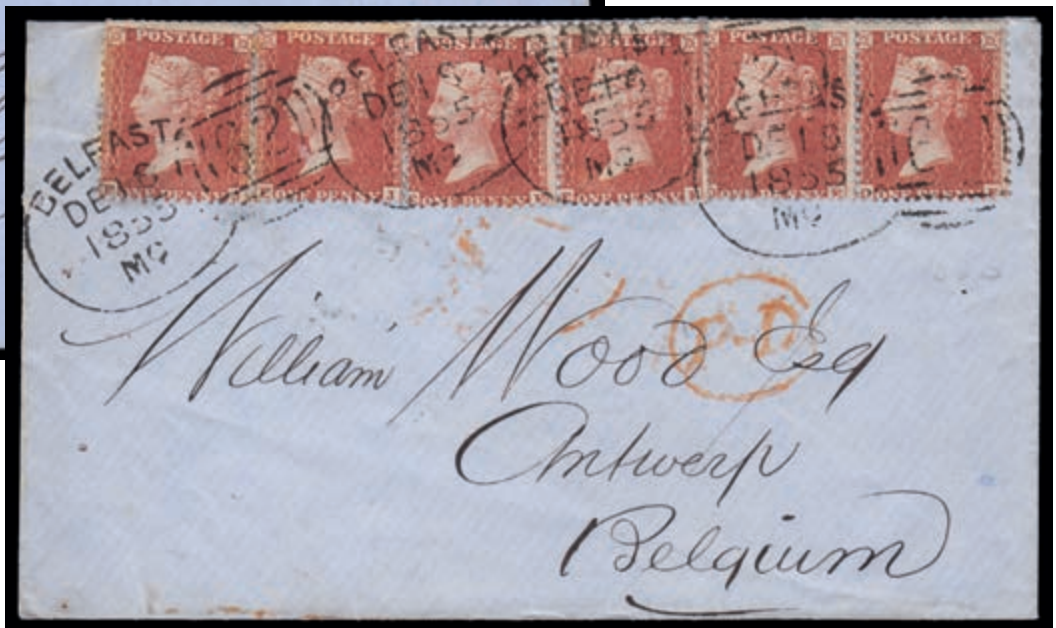 POSTAGE POSTAGE POSTAGE POSTAGE POSTAGE POSTAGE
ONE PENNY ONE PENNY ONE PENNY ONE PENNY ONE PENNY
BELFAST
1855
BELFAST
1855
BELFAST
1855
BELFAST
DE 18
1855
P.D
William Wood Esq
Antwerp
Belgium